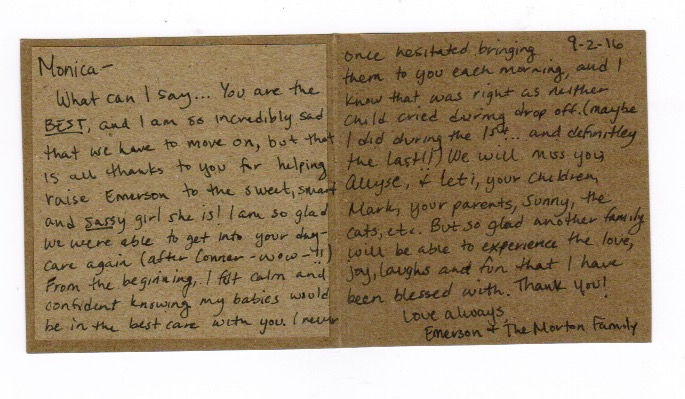 Monica-
What can I say... You are the
BEST, and I am so incredibly sad
that we have to move on, but that
is all thanks to you for helping
raise Emerson to the sweet, smart
and sassy girl she is! I am so glad
we were able to get into your day-
care again (after Conner - wow -!!)
From the beginning, I felt calm and
confident knowing my babies would
be in the best care with you. I never
9-2-16
once hesitated bringing
them to you each morning, and I
know that was right as neither
child cried during drop off. (maybe
I did during the 1st... and definitley
the last!!) We will miss you,
Allyse, & Leti, your children,
Mark, your parents, Sunny, the
cats, etc. But so glad another family
will be able to experience the love,
joy, laughs and fun that I have
been blessed with. Thank you!
Love always,
Emerson & The Morton Family